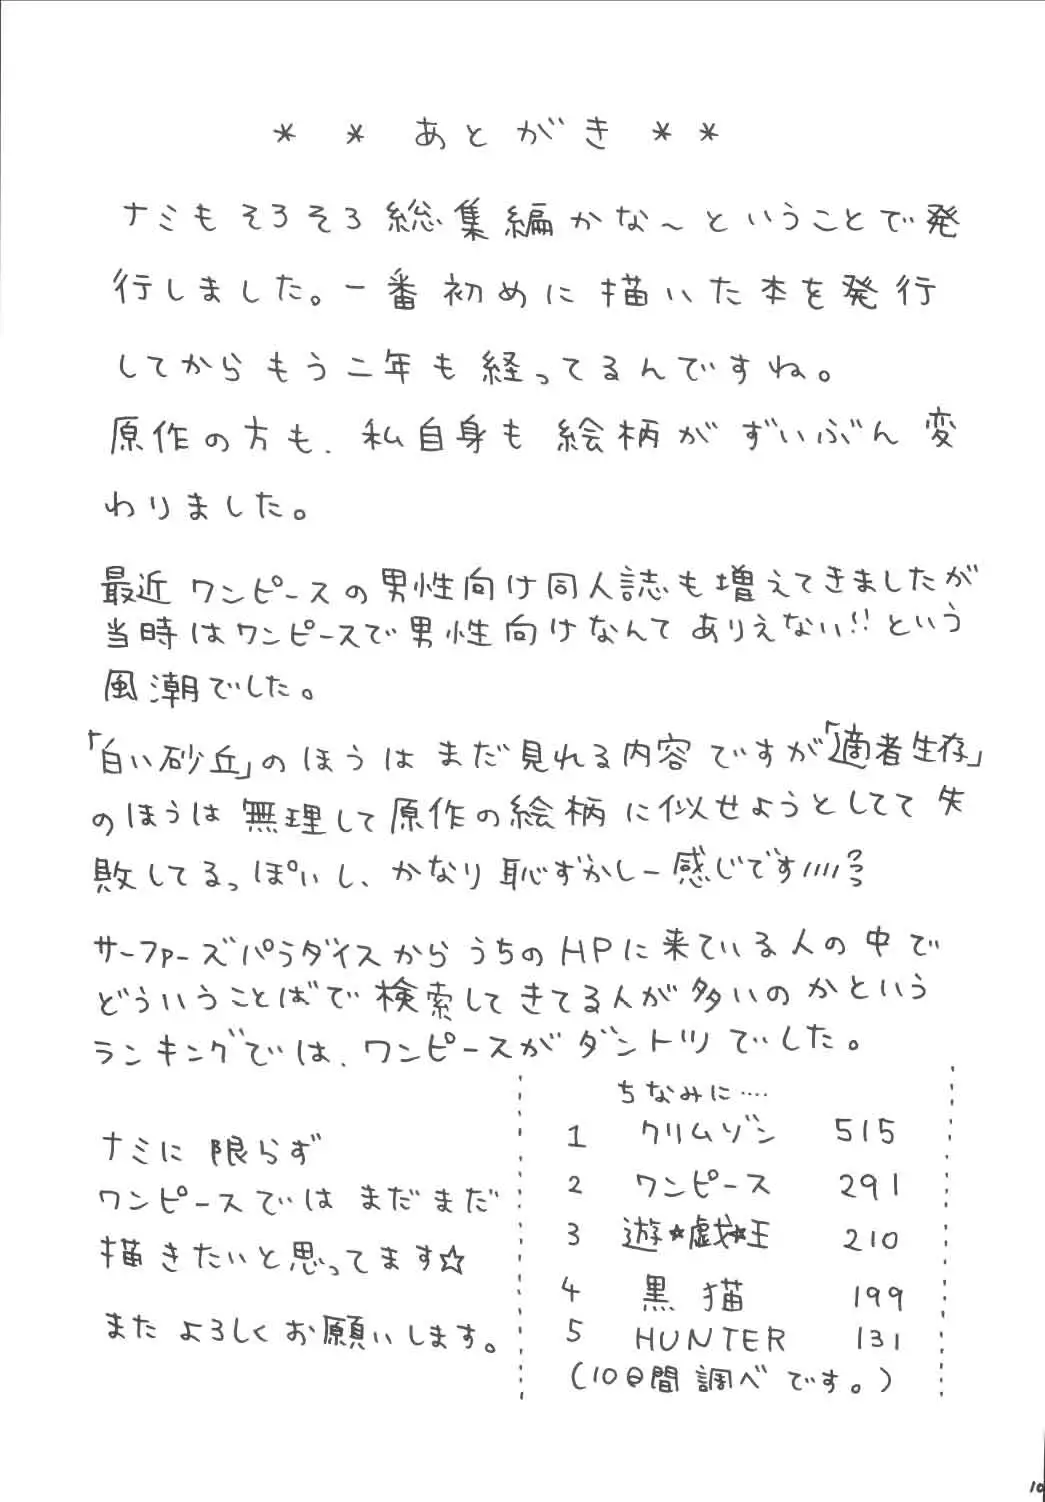 ＊ ＊ あとがき ＊＊
ナミもそろそろ総集編かな〜ということで発
行しました。一番初めに描いた本を発行
してからもう二年も経ってるんですね。
原作の方も、私自身も絵柄がずいぶん変
わりました。
最近ワンピースの男性向け同人誌も増えてきましたが
当時はワンピースで男性向けなんてありえない!!という
風潮でした。
「白い砂丘」のほうはまだ見れる内容ですが「適者生存」
のほうは無理して原作の絵柄に似せようとしてて失
敗してるっぽいし、かなり恥ずかしー感じです////
サーファーズパラダイスからうちのHPに来ている人の中で
どういうことばで検索してきてる人が多いのかという
ランキングでは、ワンピースがダントツでした。
ナミに限らず
ワンピースではまだまだ
描きたいと思ってます☆
またよろしくお願いします。
ちなみに‥‥
1 クリムゾン 515
2 ワンピース 291
3 遊☆戯☆王 210
4 黒猫 199
5 HUNTER 131
(10日間調べです。)